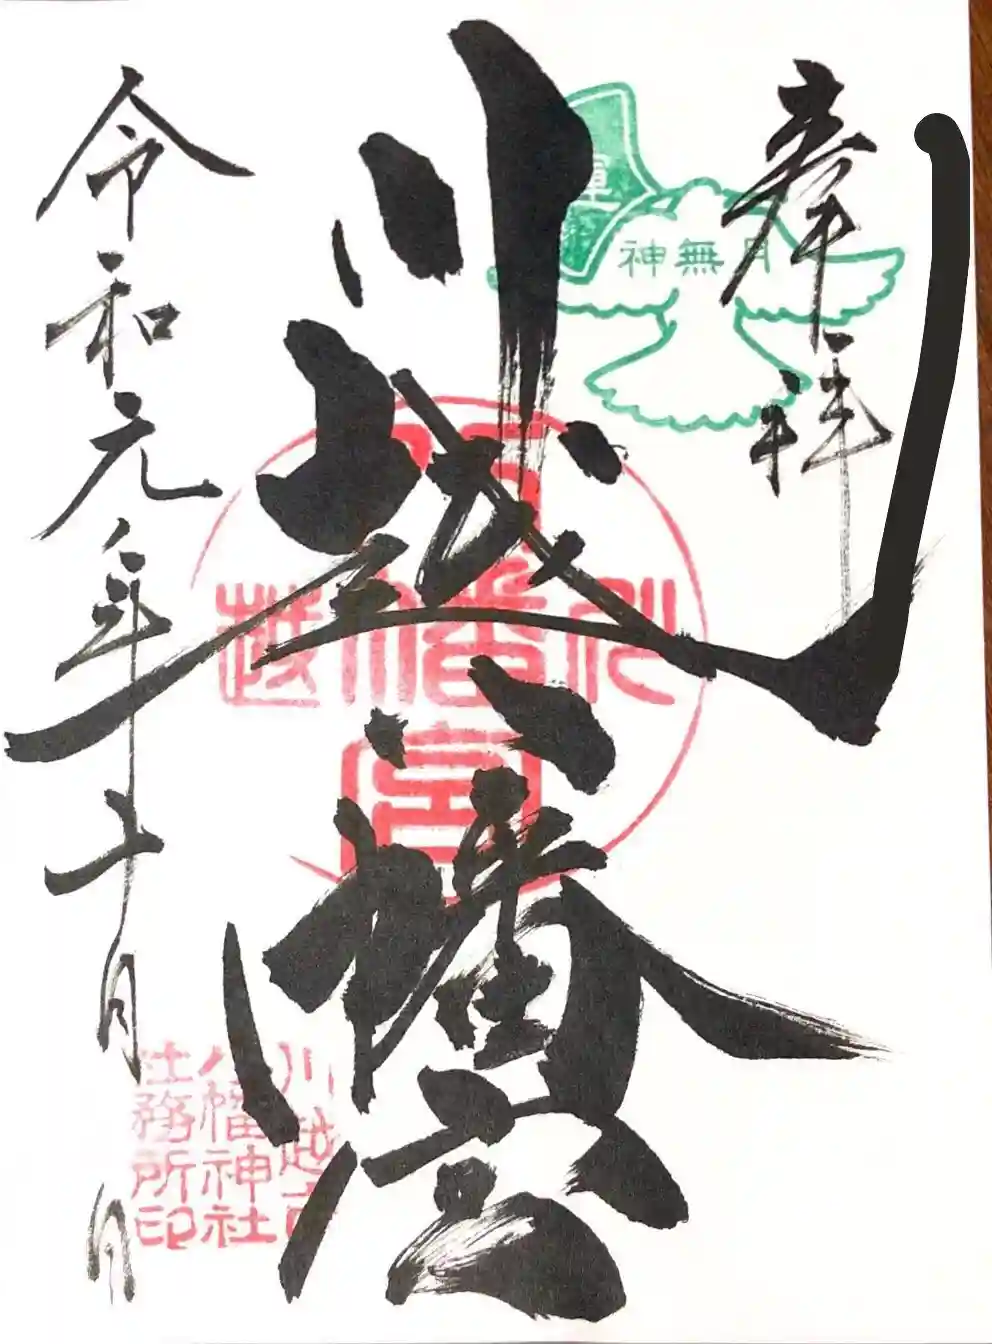 奉拝
神無月
川越八幡宮
川越八幡宮
令和元年十月 日
川越市
八幡神社
社務所印